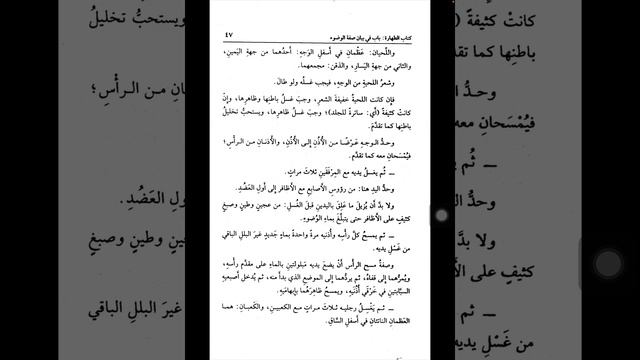 كتاب الطهارة: باب في بيان صفة الوضوء ٤٧
واللَّحيان: عَظْمانِ في أسفلِ الوَجهِ: أحدُهما من جهةِ اليَمينِ،
والثاني من جهةِ اليَسارِ، والذقن: مجمعهما.
وشعرُ اللحيةِ من الوجهِ، فيجب غَسلُه ولو طالَ.
فإن كانت اللحيةُ خفيفةَ الشعرِ، وجبَ غسلُ باطنِها وظاهرِها، وإنْ
كانتْ كثيفةً (أي: ساترةً للجلدِ)؛ وجبَ غسلُ ظاهرِها، ويستحبُّ تخليلُ
باطنِها كما تقدَّمَ.
وحدُّ الوجهِ عَرْضًا من الأُذُنِ إلى الأُذُنِ، والأُذنانِ من الرأسِ؛
فيُمْسَحانِ معه كما تقدَّم.
ــ ثُم يغسلُ يديه مع المِرْفَقَينِ ثلاثَ مراتٍ.
وحدُّ اليدِ هنا: من رؤوسِ الأصابعِ مع الأظافرِ إلى أولِ العَضُدِ.
ولا بدَّ أن يُزيلَ ما عَلِقَ باليدينِ قبلَ الغَسْلِ: من عجينٍ وطينٍ وصبغٍ
كثيفٍ على الأظافر حتى يتبلَّغَ بماءِ الوُضوءِ.
ــ ثم يمسحُ كلَّ رأسِه وأذنيه مرةً واحدةً بماءٍ جديدٍ غيرَ البللِ الباقي
من غَسْلِ يديه.
وصفةُ مسحِ الرأسِ أنْ يضعَ يديه مَبلولتينِ بالماءِ على مقدَّمِ رأسِه،
ويُمِرَّهما إلى قفاهُ، ثم يردُّهما إلى الموضعِ الذي بدأ منه، ثم يُدخل أصبعيهِ
السبَّابتينِ في خَرْقَي أُذُنَيْهِ، ويمسحُ ظاهرَهُما بإبهامَيْهِ.
ــ ثم يَغْسِلُ رجليه ثلاثَ مراتٍ مع الكعبينِ، والكَعبانِ: هما
العَظمانِ الناتئانِ في أسفلِ السَّاقِ.